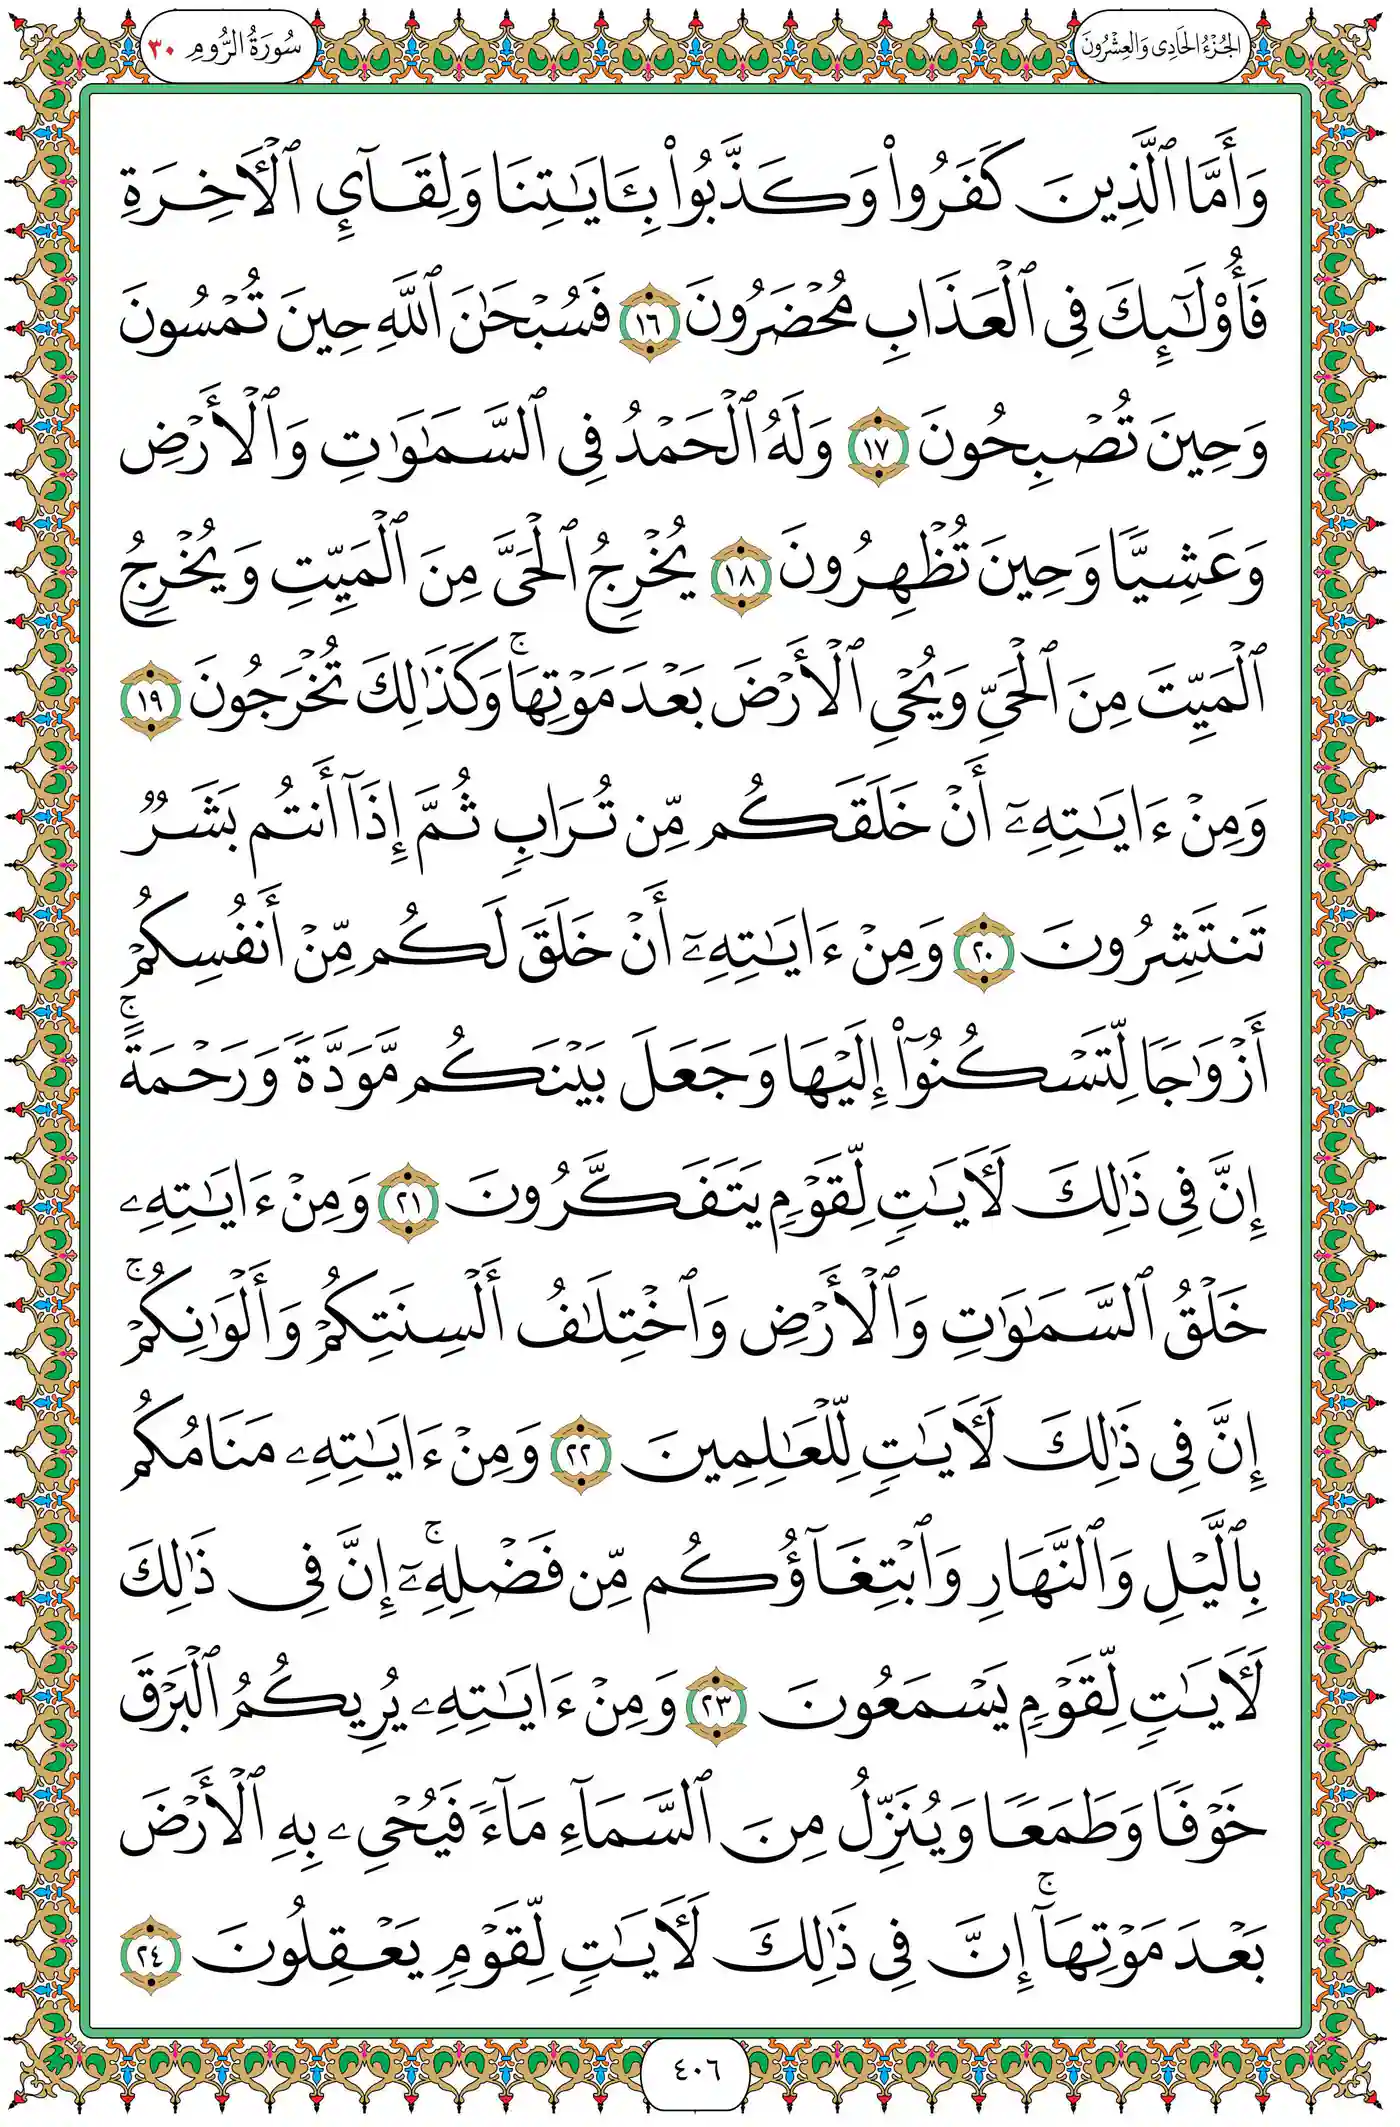 الجُزْءُ الحَادِي وَالعِشْرُونَ
سُورَةُ الرُّومِ ٣٠
وَأَمَّا ٱلَّذِينَ كَفَرُوا۟ وَكَذَّبُوا۟ بِـَٔايَـٰتِنَا وَلِقَآئِ ٱلْـَٔاخِرَةِ
فَأُو۟لَـٰٓئِكَ فِى ٱلْعَذَابِ مُحْضَرُونَ ١٦ فَسُبْحَـٰنَ ٱللَّهِ حِينَ تُمْسُونَ
وَحِينَ تُصْبِحُونَ ١٧ وَلَهُ ٱلْحَمْدُ فِى ٱلسَّمَـٰوَٰتِ وَٱلْأَرْضِ
وَعَشِيًّا وَحِينَ تُظْهِرُونَ ١٨ يُخْرِجُ ٱلْحَىَّ مِنَ ٱلْمَيِّتِ وَيُخْرِجُ
ٱلْمَيِّتَ مِنَ ٱلْحَىِّ وَيُحْىِ ٱلْأَرْضَ بَعْدَ مَوْتِهَا ۚ وَكَذَٰلِكَ تُخْرَجُونَ ١٩
وَمِنْ ءَايَـٰتِهِۦٓ أَنْ خَلَقَكُم مِّن تُرَابٍ ثُمَّ إِذَآ أَنتُم بَشَرٌ
تَنتَشِرُونَ ٢٠ وَمِنْ ءَايَـٰتِهِۦٓ أَنْ خَلَقَ لَكُم مِّنْ أَنفُسِكُمْ
أَزْوَٰجًا لِّتَسْكُنُوٓا۟ إِلَيْهَا وَجَعَلَ بَيْنَكُم مَّوَدَّةً وَرَحْمَةً ۚ
إِنَّ فِى ذَٰلِكَ لَـَٔايَـٰتٍ لِّقَوْمٍ يَتَفَكَّرُونَ ٢١ وَمِنْ ءَايَـٰتِهِۦ
خَلْقُ ٱلسَّمَـٰوَٰتِ وَٱلْأَرْضِ وَٱخْتِلَـٰفُ أَلْسِنَتِكُمْ وَأَلْوَٰنِكُمْ ۚ
إِنَّ فِى ذَٰلِكَ لَـَٔايَـٰتٍ لِّلْعَـٰلِمِينَ ٢٢ وَمِنْ ءَايَـٰتِهِۦ مَنَامُكُم
بِٱلَّيْلِ وَٱلنَّهَارِ وَٱبْتِغَآؤُكُم مِّن فَضْلِهِۦٓ ۚ إِنَّ فِى ذَٰلِكَ
لَـَٔايَـٰتٍ لِّقَوْمٍ يَسْمَعُونَ ٢٣ وَمِنْ ءَايَـٰتِهِۦ يُرِيكُمُ ٱلْبَرْقَ
خَوْفًا وَطَمَعًا وَيُنَزِّلُ مِنَ ٱلسَّمَآءِ مَآءً فَيُحْىِۦ بِهِ ٱلْأَرْضَ
بَعْدَ مَوْتِهَآ ۚ إِنَّ فِى ذَٰلِكَ لَـَٔايَـٰتٍ لِّقَوْمٍ يَعْقِلُونَ ٢٤
٤٠٦